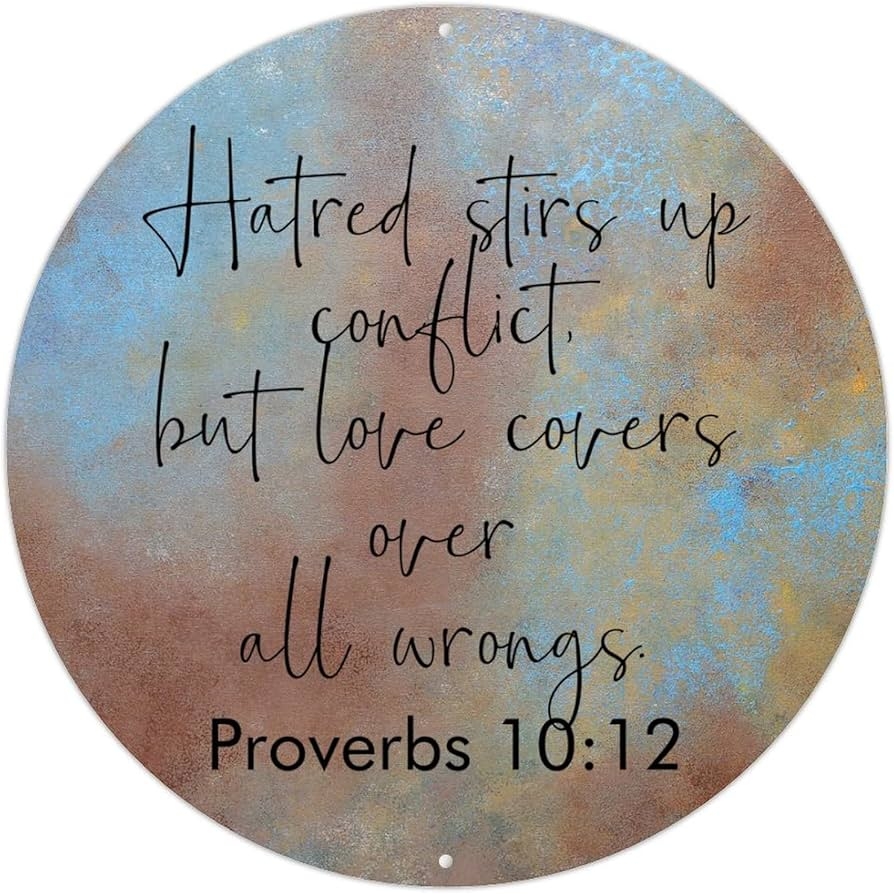 Hatred stirs up
conflict,
but love covers
over
all wrongs.
Proverbs 10:12